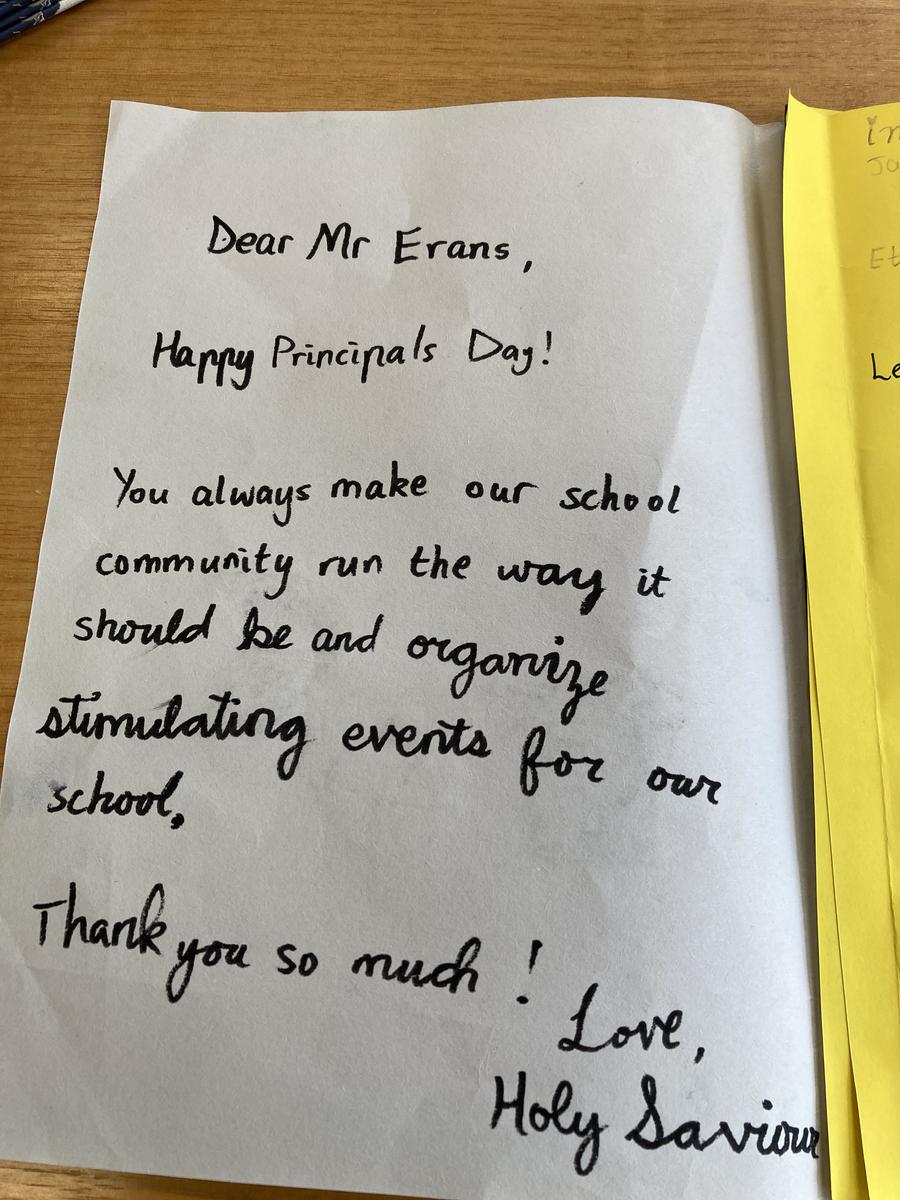 Dear Mr Erans,
Happy Principals Day!
You always make our school
community run the way it
should be and organize
stimulating events for our
school,
Thank you so much!
Love,
Holy Saviour
Le